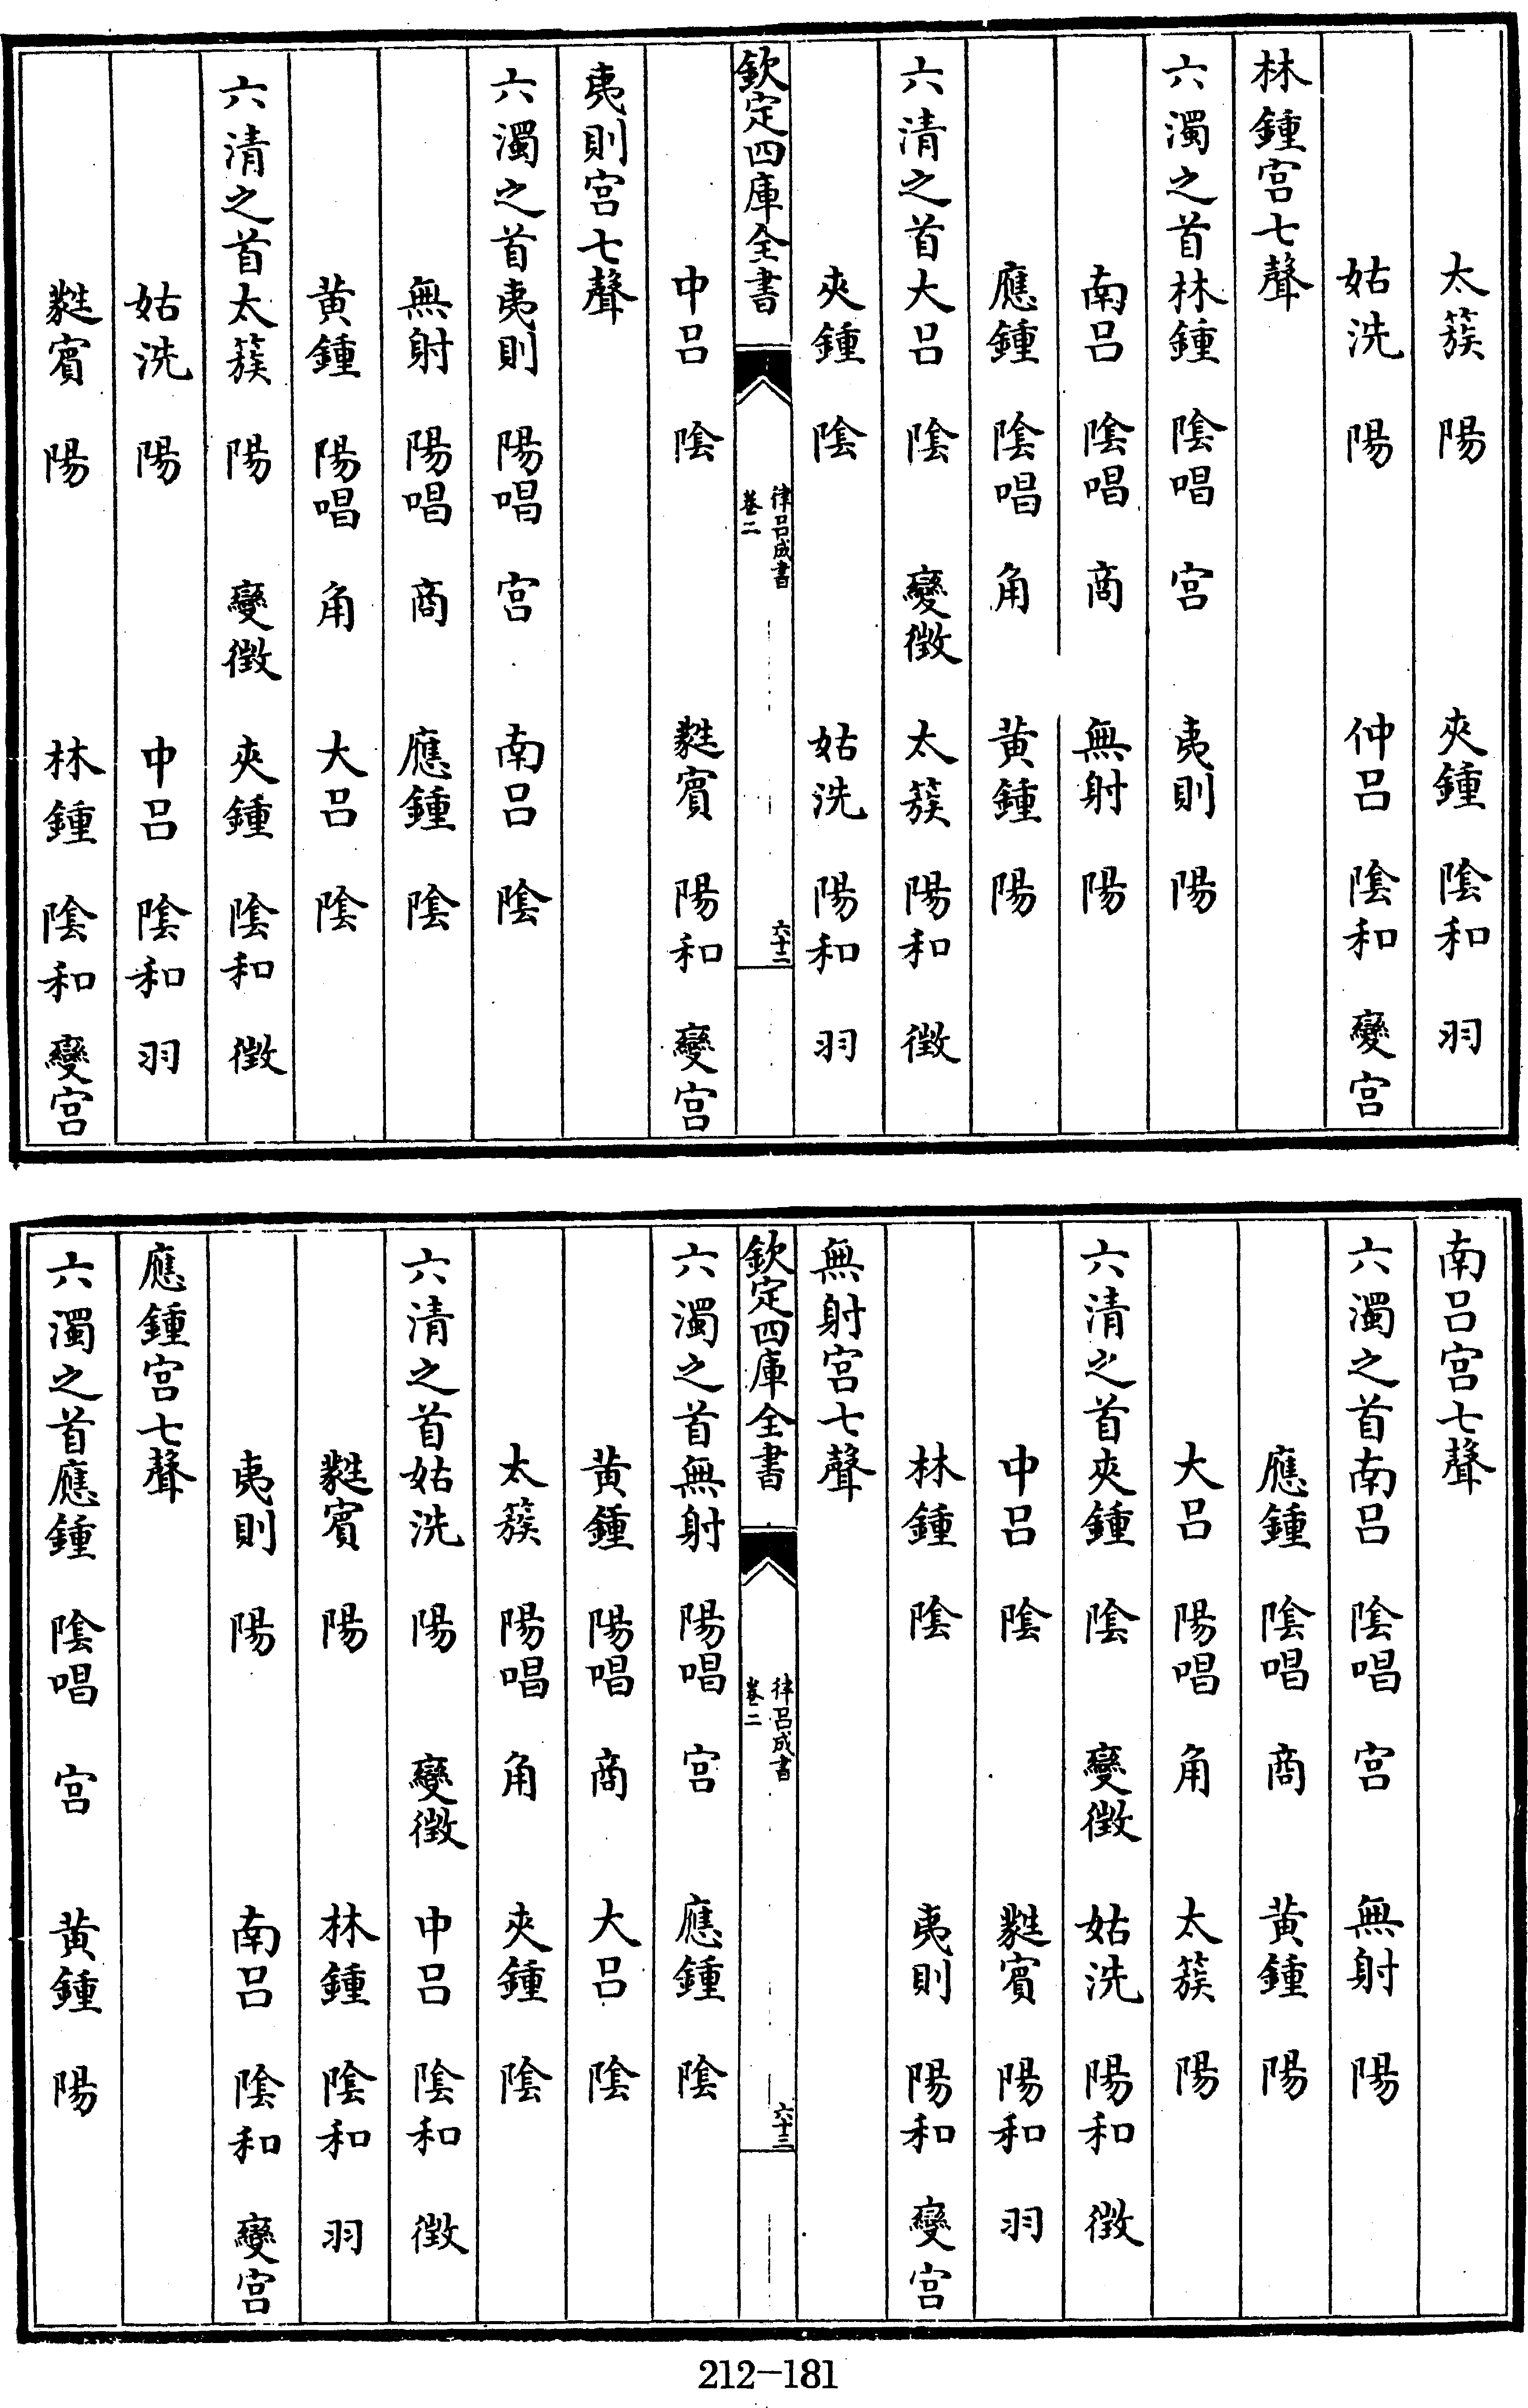 太簇　陽　夾鍾　陰和　羽
姑洗　陽　仲呂　陰和　變宫
林鍾宫七聲
六濁之首林鍾　陰唱　宫　夷則　陽
南呂　陰唱　商　無射　陽
應鍾　陰唱　角　黄鍾　陽
六清之首大呂　陰　變徵　太簇　陽和　徵
夾鍾　陰　姑洗　陽和　羽
欽定四庫全書　律呂成書　卷二　六十二
中呂　陰　蕤賓　陽和　變宫
夷則宫七聲
六濁之首夷則　陽唱　宫　南呂　陰
無射　陽唱　商　應鍾　陰
黄鍾　陽唱　角　大呂　陰
六清之首太簇　陽　變徵　夾鍾　陰和　徵
姑洗　陽　中呂　陰和　羽
蕤賓　陽　林鍾　陰和　變宫
南呂宫七聲
六濁之首南呂　陰唱　宫　無射　陽
應鍾　陰唱　商　黄鍾　陽
大呂　陽唱　角　太簇　陽
六清之首夾鍾　陰　變徵　姑洗　陽和　徵
中呂　陰　蕤賓　陽和　羽
林鍾　陰　夷則　陽和　變宫
無射宫七聲
欽定四庫全書　律呂成書　卷二　六十三
六濁之首無射　陽唱　宫　應鍾　陰
黄鍾　陽唱　商　大呂　陰
太簇　陽唱　角　夾鍾　陰
六清之首姑洗　陽　變徵　中呂　陰和　徵
蕤賓　陽　林鍾　陰和　羽
夷則　陽　南呂　陰和　變宫
應鍾宫七聲
六濁之首應鍾　陰唱　宫　黄鍾　陽
212-181